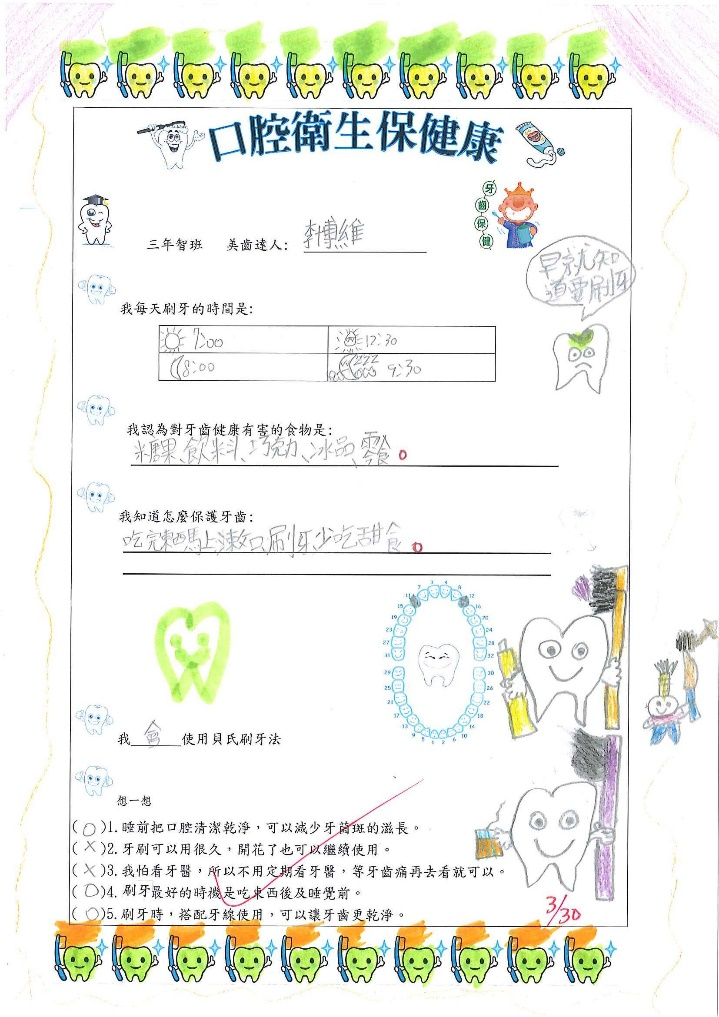 口腔衛生保健康
牙齒保健
三年智班 美齒達人: 李博維
早就知
道要刷牙
我每天刷牙的時間是:
7:00 12:30
8:00 9:30
我認為對牙齒健康有害的食物是:
糖果、飲料、巧克力、冰品、零食
我知道怎麼保護牙齒:
吃完東西馬上漱口刷牙少吃甜食
我會使用貝氏刷牙法
想一想
(O)1. 睡前把口腔清潔乾淨，可以減少牙菌斑的滋長。
(X)2. 牙刷可以用很久，開花了也可以繼續使用。
(X)3. 我怕看牙醫，所以不用定期看牙醫，等牙齒痛再去看就可以。
(O)4. 刷牙最好的時機是吃東西後及睡覺前。
(O)5. 刷牙時，搭配牙線使用，可以讓牙齒更乾淨。
3/30